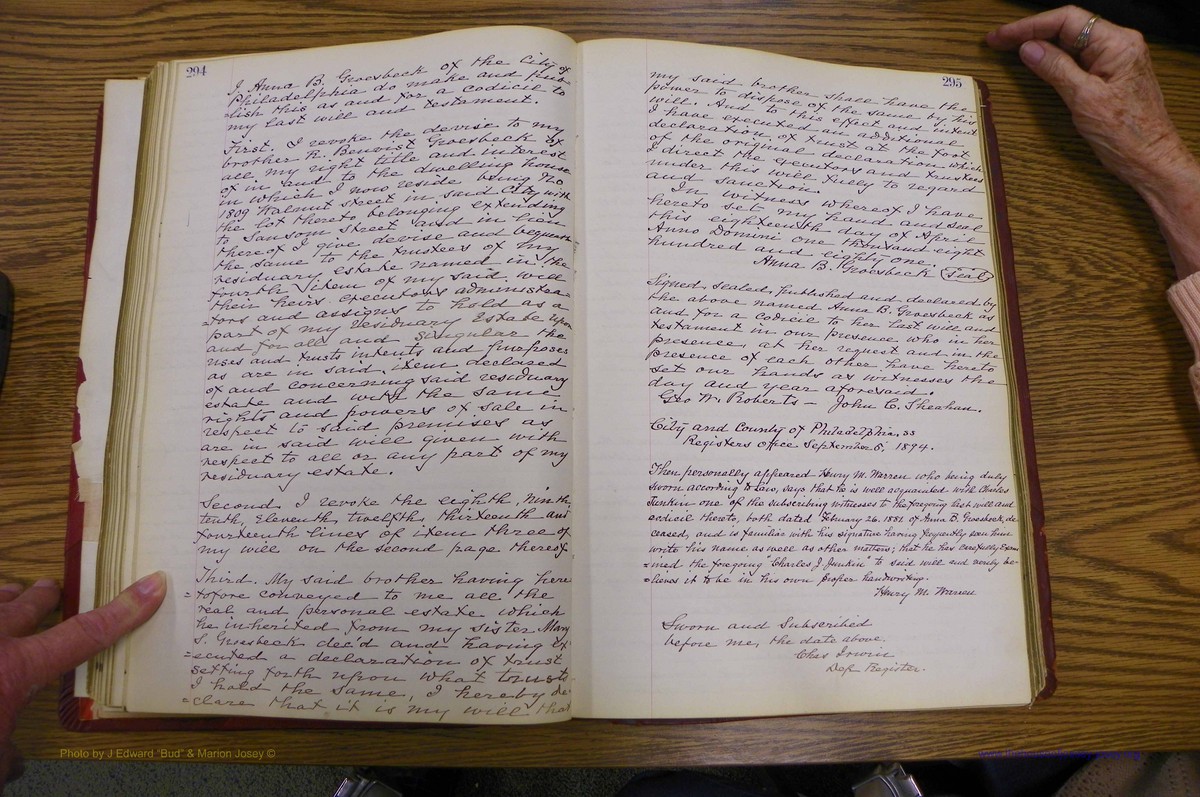 294
I Anna B. Groesbeck of the City of
Philadelphia do make and pub
=lish this as and for a codicil to
my last will and testament.
First. I revoke the devise to my
brother H. Benvist Groesbeck of
all my right title and interest
of in and to the dwelling house
in which I now reside being No
1809 Walnut street in said City with
the lot thereto belonging extending
to Sansom Street and in lieu
thereof I give devise and bequeath
the same to the trustees of my
residuary estate named in the
fourth item of my said will
their heirs executors administra=
=tors and assigns to hold as a
part of my residuary Estate upon
and for all and singular the
uses and trusts intents and purposes
as are in said item declared
of and concerning said residuary
estate and with the same
rights and powers of sale in
respect to said premises as
are in said will given with
respect to all or any part of my
residuary estate.
Second. I revoke the eighth, ninth
tenth, eleventh twelfth, thirteenth and
fourteenth lines of item three of
my will on the second page thereof
Third. My said brother having here
=tofore conveyed to me all the
real and personal estate which
he inherited from my sister Mary
S. Groesbeck dec'd and having ex
=ecuted a declaration of trust
setting forth upon what trusts
I hold the same, I hereby de-
=clare that it is my will that
295
my said brother shall have the
power to dispose of the same by his
will. And to this effect and intent
I have executed an additional
declaration of trust at the foot
of the original declaration which
I direct the executors and trustees
under this will fully to regard
and sanction.
In witness whereof I have
hereto set my hand and seal
this eighteenth day of April
Anno Domini one thousand eight
hundred and eighty one.
Anna B. Groesbeck (Seal)
Signed, sealed, published and declared by
the above named Anna B. Groesbeck as
and for a codicil to her last will and
testament in our presence who in her
presence, at her request and in the
presence of each other have hereto
set our hands as witnesses the
day and year aforesaid.
Geo W. Roberts – John C. Sheahan.
City and County of Philadelphia. ss
Registers office September 6, 1894.
Then personally appeared Henry M. Warren who being duly
sworn according to law, says that he is well acquainted with Charles
Junkin one of the subscribing witnesses to the foregoing last will and
codicil thereto, both dated February 26. 1881 of Anna B. Groesbeck, de-
ceased, and is familiar with his signature having frequently seen him
write his name as well as other matters; that he has carefully exam
=ined the foregoing "Charles J. Junkin" to said will and verily be-
=lieves it to be in his own proper handwriting.
Henry M. Warren
Sworn and Subscribed
before me, the date above.
Chas Irwin
Dep. Register.
Photo by J Edward "Bud" & Marion Josey ©